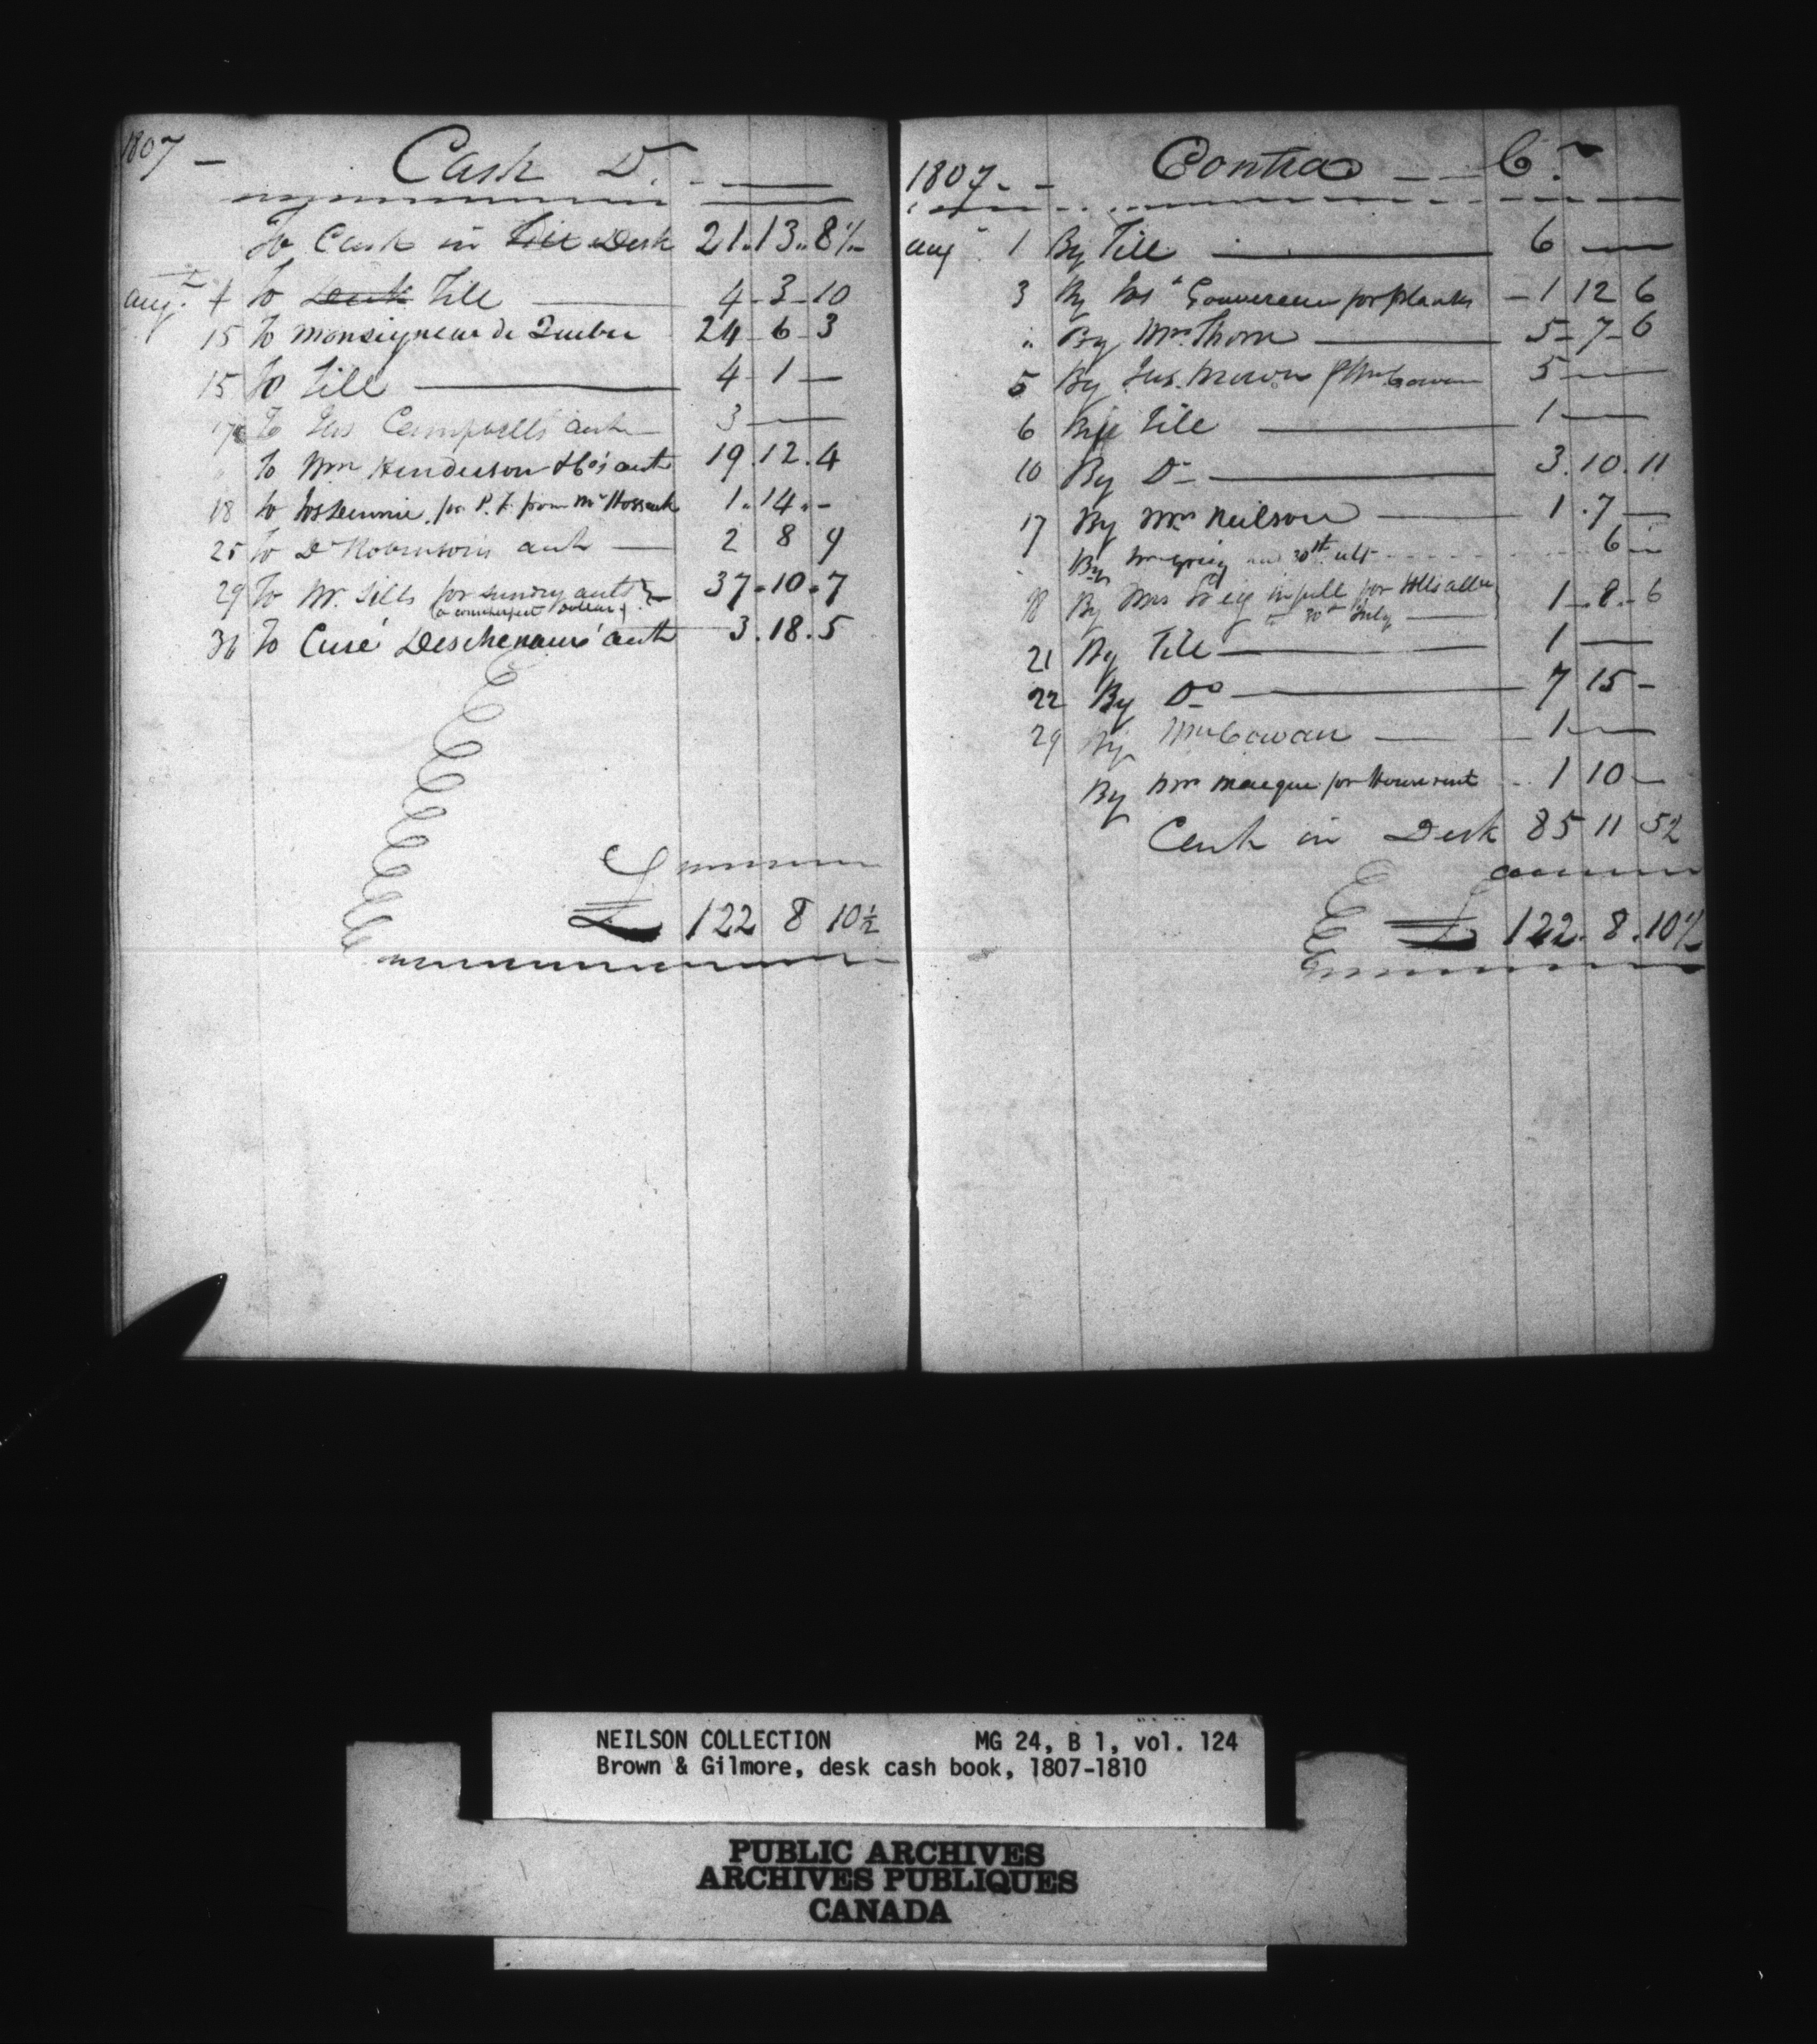 1807 —
Cash Dr.
To Cash in Till Desk 21..13..8½
Augt. 4 To Desk Till 4-3-10
15 To Monseigneur de Quebec 24-6-3
15 To Till 4-1-
17 To Jas Campbells acct 3 —
" To Wm Henderson & Co's acct 19.12.4
18 To for P. F. from Mr 1..14..-
25 To Dr Robinson's acct — 2 8 9
29 To W. Sills for sundry accts 37.10.7
(a counterfeit dollar)
31 To Curé Deschenaux' acct 3.18.5
£ 122 8 10½
1807. -
Contra — Cr.
Augt 1 By Till 6 —
3 By for planks - 1 12 6
" By Mrs Thorn 5-7-6
5 By Jas. Brown p Wm Cowan 5 —
6 By Till 1 —
10 By Do 3.10.11
17 By Mrs Neilson 1.7 —
By 30th ult 6 -
18 By Mrs in full for
to 30th July 1-8-6
21 By Till 1 —
22 By Do 7 15 -
29 By Wm Cowan 1 —
By for House rent 1 10 -
Cash in Desk 85 11 5½
£ 122.8.10½
NEILSON COLLECTION MG 24, B 1, vol. 124
Brown & Gilmore, desk cash book, 1807-1810
PUBLIC ARCHIVES
ARCHIVES PUBLIQUES
CANADA